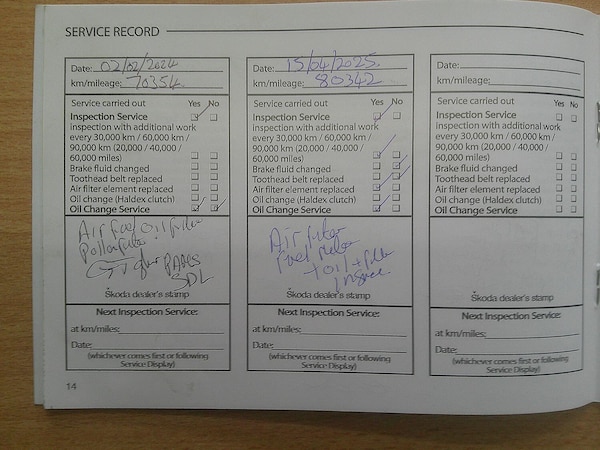 SERVICE RECORD
Date: 02/02/2024
km/mileage: 70354
Service carried out Yes No
Inspection Service
inspection with additional work
every 30,000 km / 60,000 km /
90,000 km (20,000 / 40,000 /
60,000 miles)
Brake fluid changed
Toothead belt replaced
Air filter element replaced
Oil change (Haldex clutch)
Oil Change Service
Air fuel oil filter
Pollen filter
PADS
SDL
Škoda dealer's stamp
Next Inspection Service:
at km/miles:
Date:
(whichever comes first or following
Service Display)
14
Date: 15/04/2025.
km/mileage: 80342
Service carried out Yes No
Inspection Service
inspection with additional work
every 30,000 km / 60,000 km /
90,000 km (20,000 / 40,000 /
60,000 miles)
Brake fluid changed
Toothead belt replaced
Air filter element replaced
Oil change (Haldex clutch)
Oil Change Service
Air filter
Fuel filter
+ oil + filter
Škoda dealer's stamp
Next Inspection Service:
at km/miles:
Date:
(whichever comes first or following
Service Display)
Date:
km/mileage:
Service carried out Yes No
Inspection Service
inspection with additional work
every 30,000 km / 60,000 km /
90,000 km (20,000 / 40,000 /
60,000 miles)
Brake fluid changed
Toothead belt replaced
Air filter element replaced
Oil change (Haldex clutch)
Oil Change Service
Škoda dealer's stamp
Next Inspection Service:
at km/miles:
Date:
(whichever comes first or following
Service Display)